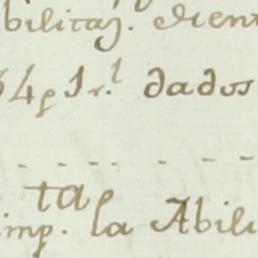 bilitaz. Sient
64 p 1 r.l dados
ta p
imp. la Abili